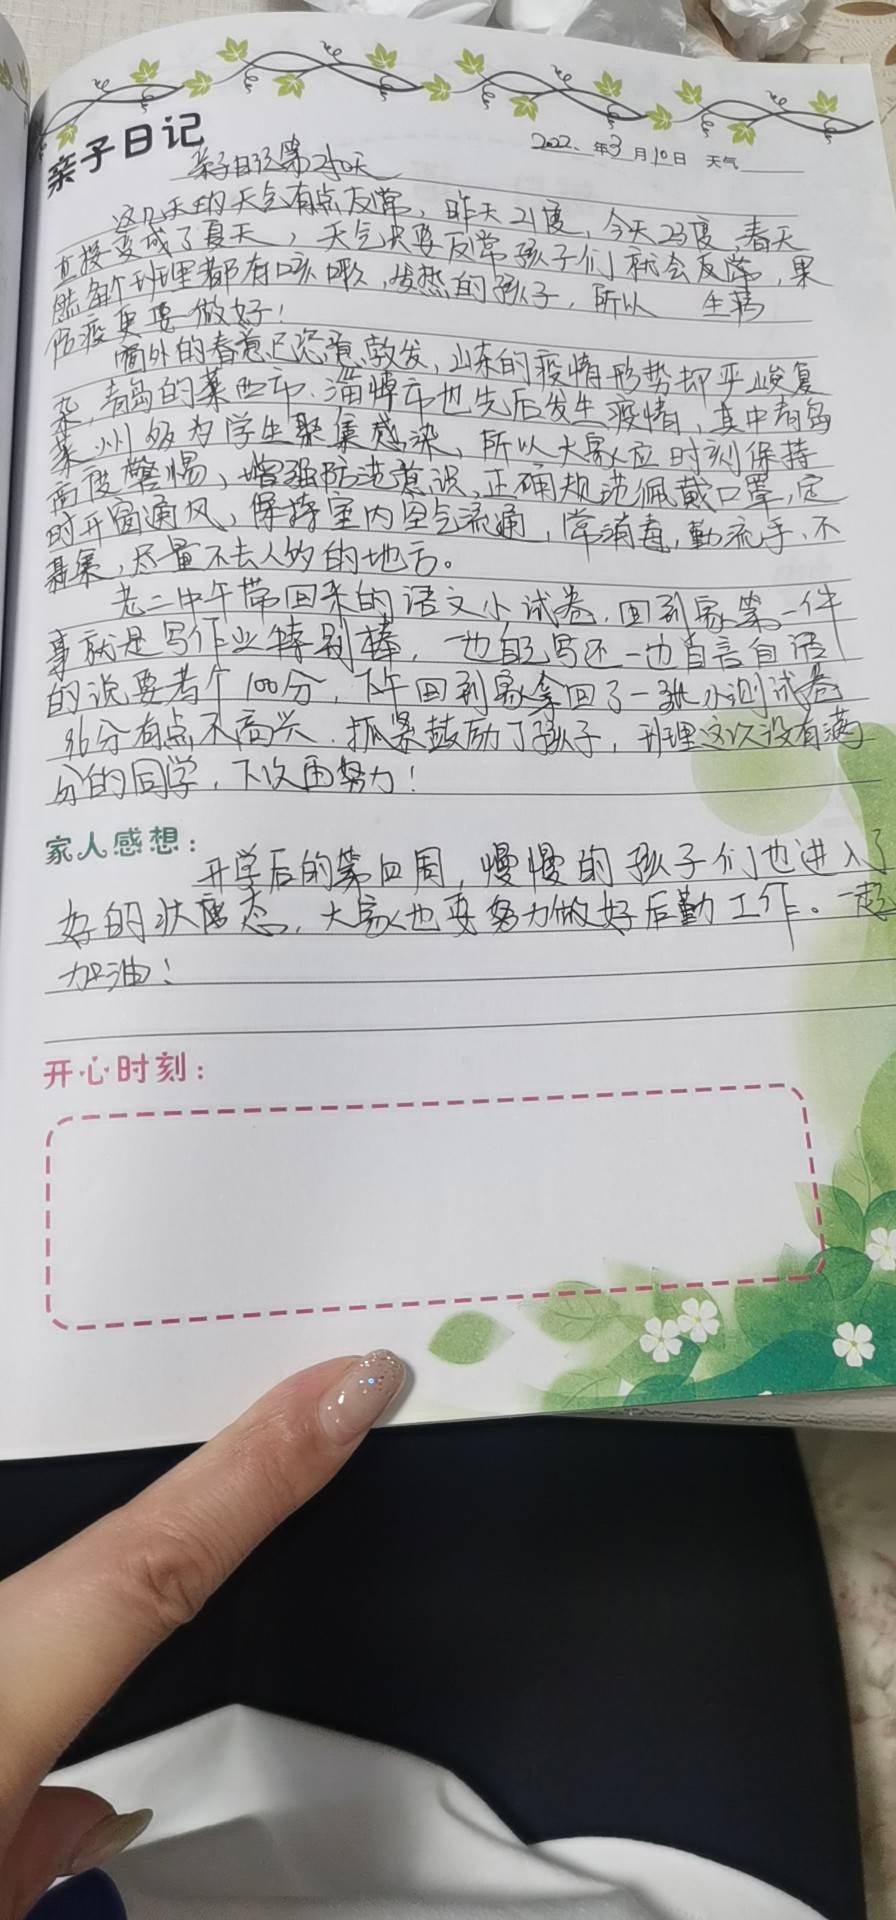 亲子日记
2022年3月10日 天气
亲子日记第240天
这几天的天气有点反常，昨天21度，今天23度，春天
直接变成了夏天，天气只要反常孩子们就会反常，果
然每个班里都有咳嗽，发热的孩子，所以 生病
防疫更要做好！
窗外的春意已恣意散发，山东的疫情形势却严峻复
杂，青岛的莱西市、淄博市也先后发生疫情，其中青岛
莱州多为学生聚集感染，所以大家应时刻保持
高度警惕，增强防范意识，正确规范佩戴口罩，定
时开窗通风，保持室内空气流通，常消毒，勤流手，不
聚集，尽量不去人多的地方。
老二中午带回来的语文小试卷，回到家第一件
事就是写作业特别棒，一边自己写还一边自言自语
的说要考个100分，下午回到家拿回了一张小测试卷
96分有点不高兴，抓紧鼓励了孩子，班里这次没有满
分的同学，下次再努力！
家人感想：
开学后的第四周，慢慢的孩子们也进入了
好的状态，大家也要努力做好后勤工作。一起
加油！
开心时刻：